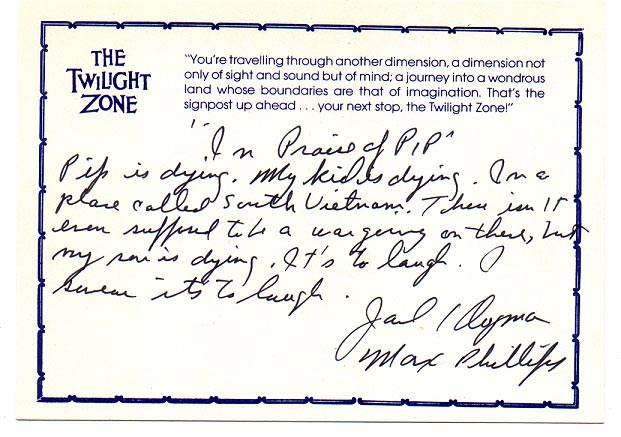 THE
TWILIGHT
ZONE
"You're travelling through another dimension, a dimension not
only of sight and sound but of mind; a journey into a wondrous
land whose boundaries are that of imagination. That's the
signpost up ahead . . . your next stop, the Twilight Zone!"
"In Praise of PIP"
Pip is dying. My kid is dying. In a
place called South Vietnam. There isn't
even supposed to be a war going on there, but
my son is dying. It's to laugh. I
swear it's to laugh.
Jack Klugman
Max Phillips